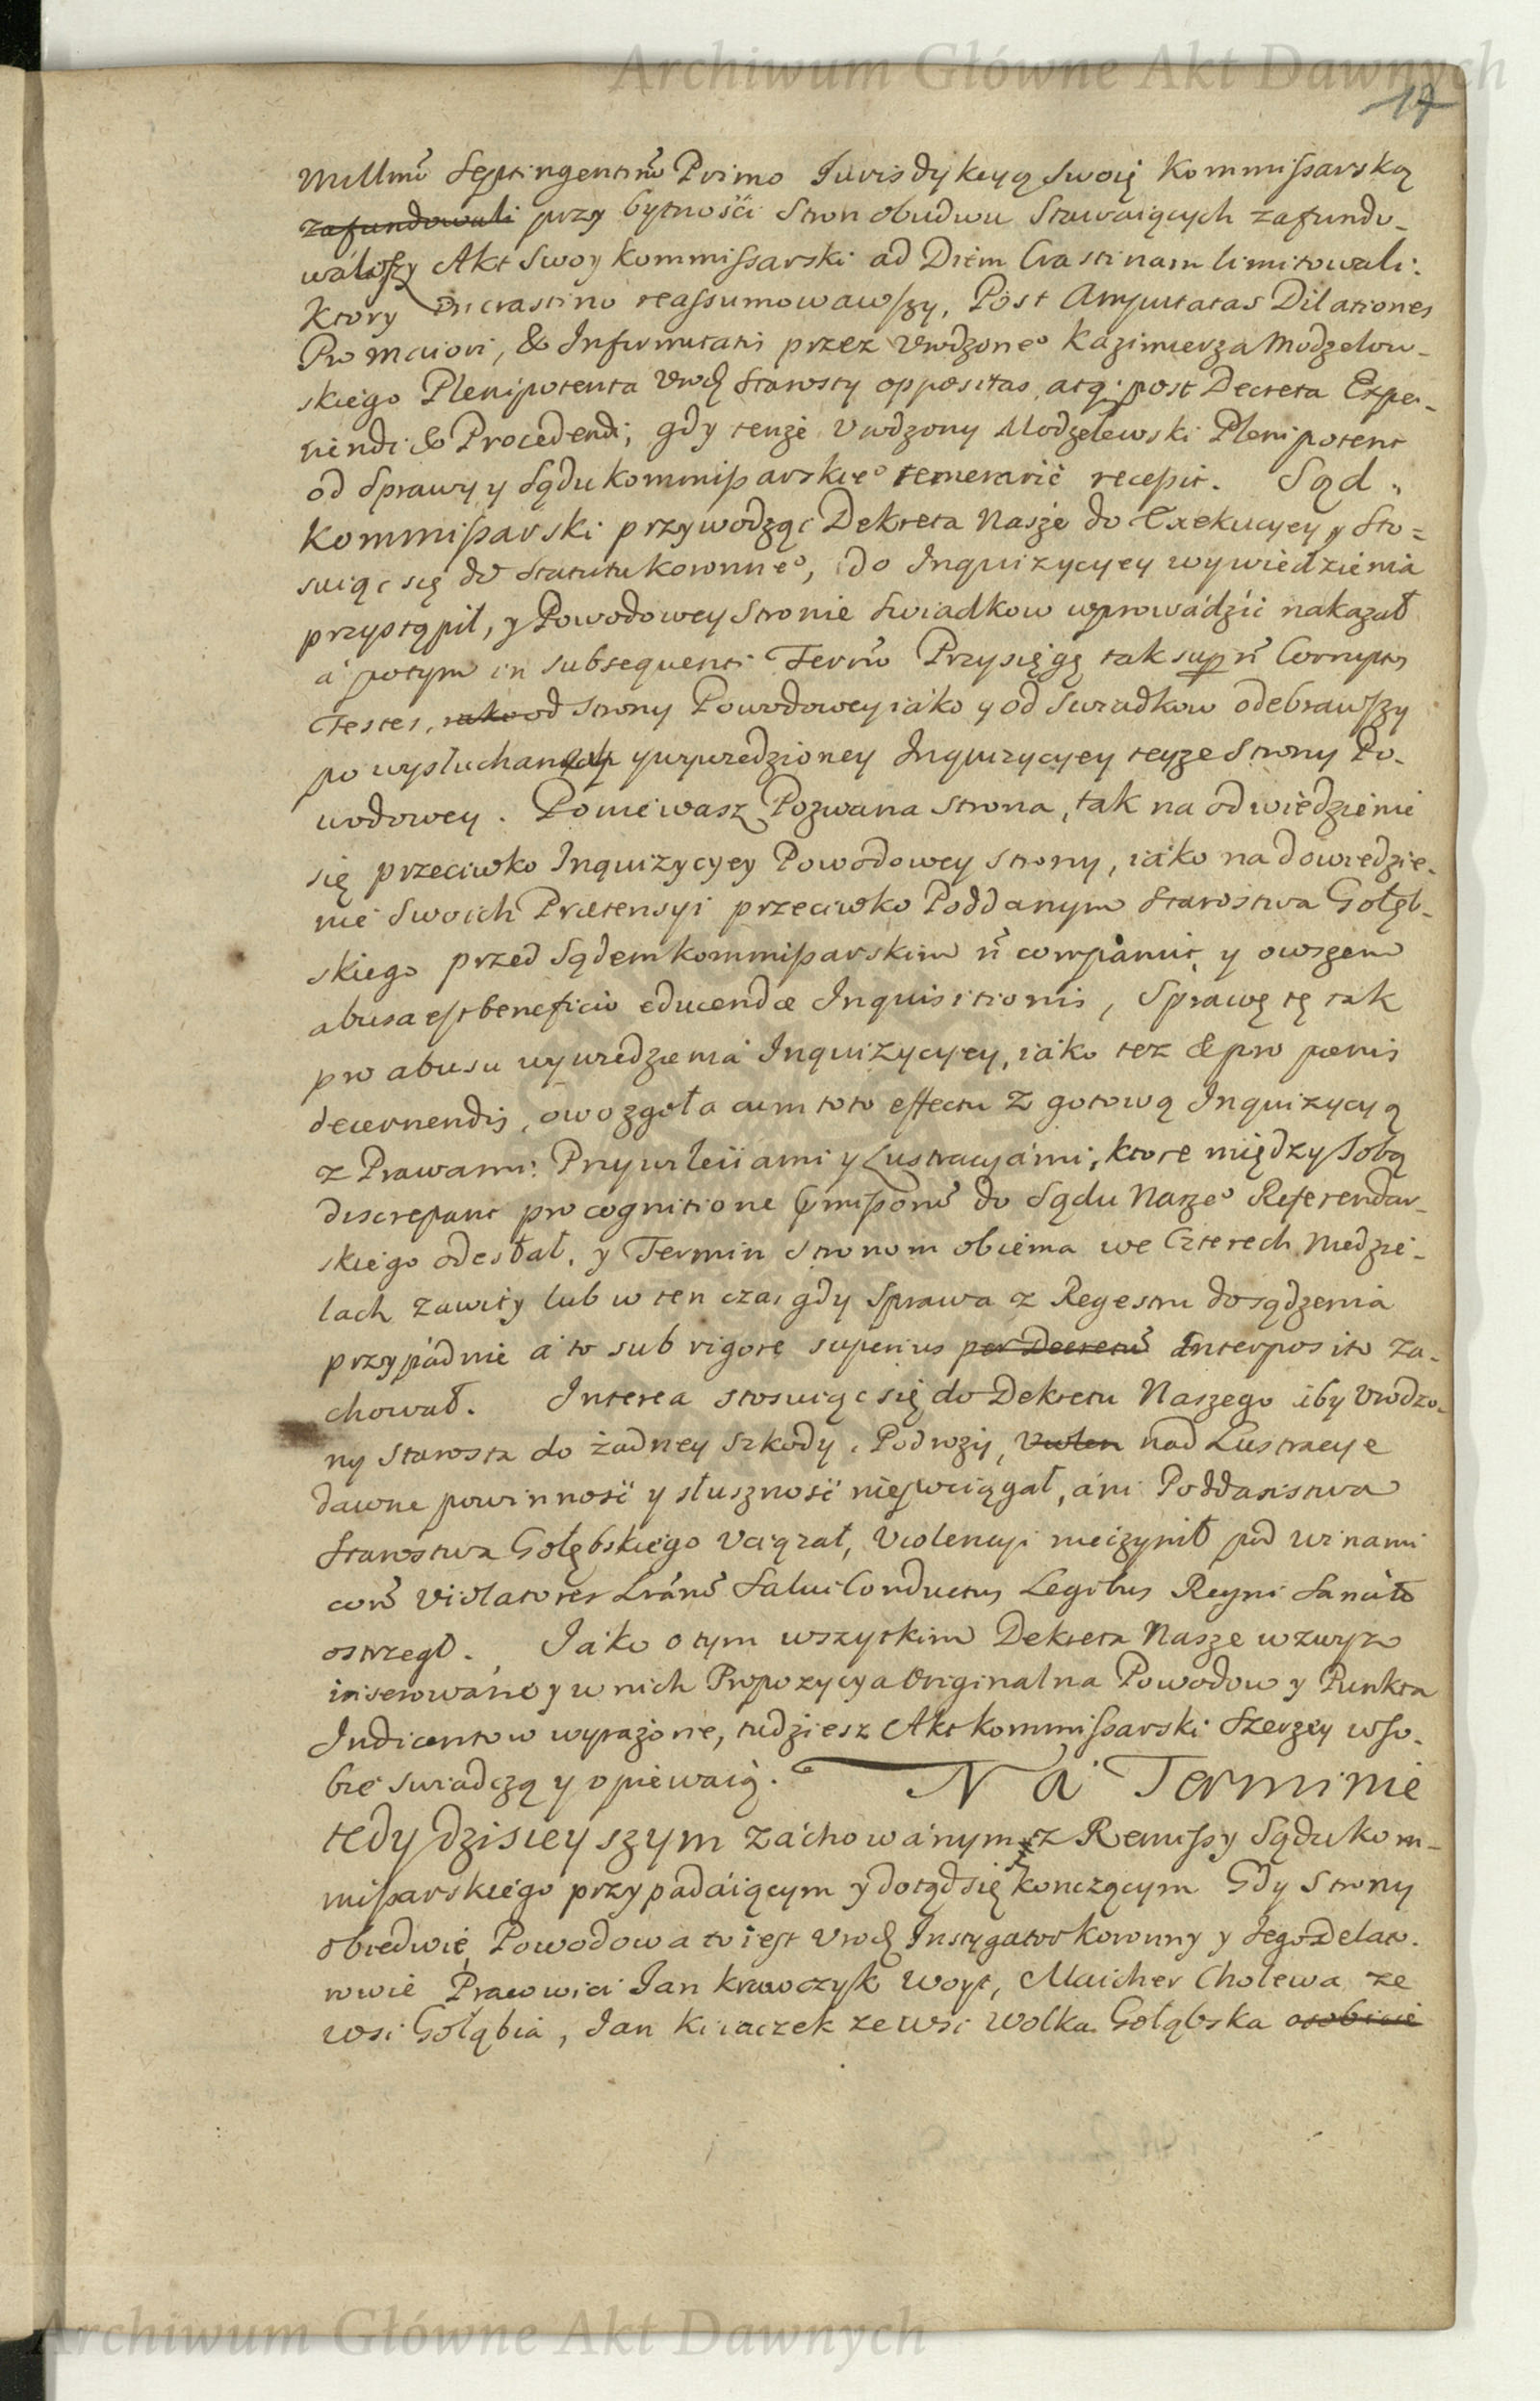 Archiwum Główne Akt Dawnych
17
Millmō Septingentmō Primo Jurisdykcyą Swoię Kommissarską
zafundowali przy bytnośći Stron obudwu Stawaiących zafundo-
wáwszy Akt Swoy Kommissarski ad Diem Crastinam limitowali:
Ktory in crastino reassumowawszy, Post Amputatas Dilationes
Pro maiori, & Infirmitatis przez Urodzoneo Kazimierza Modzelow-
skiego Plenipotenta Urod Starosty oppositas atq; post Decreta Expe-
riendi & Procedendi; gdy tenże Urodzony Modzelewski Plenipotent
od Sprawy y Sądu Kommissarskieo temerarie recessit. Sąd
Kommissarski przywodząc Dekreta Nasze do Exekucyey y Sto-
suiąc się do Statutu Koronneo, do Inquizycyey wywiedzienia
przystąpił, y Powodowey Stronie Swiadkow wprowádźić nakazał
á potym in subsequenti Termō Przysięgę tak super ñ Corruptos
Testes, iako od Strony Powodowey iáko y od Swiadkow odebrawszy
po wysłuchaney y wywiedzioney Inquizycyey teyże Strony Po-
wodowey. Poniewasz Pozwana Strona, tak na odwiedzienie
się przeciwko Inquizycyey Powodowey Strony, iáko na dowiedzie-
nie Swoich Prætensyi przeciwko Poddanym Starostwa Gołęb-
skiego przed Sądem Kommissarskim ñ comparuit, y owszem
abusa est beneficio educendæ Inquisitionis, Sprawę tę tak
pro abusu wywiedzienia Inquizycyey, iáko tez & pro pœnis
decernendis, owo zgoła cum toto effectu z gotową Inquizycyą
z Prawami: Przywileiiami y Lustracyámi, ktore między Sobą
discrepant pro cognitione Cōmissorū do Sądu Naszeo Referendar-
skiego odesłał, y Termin Stronom obiema we Czterech Niedzie-
lach zawity lub w ten czas gdy Sprawa z Regestru do sądzenia
przypádnie á to sub rigore superius per Decretū interposito za-
chował. Interea stosuiąc się do Dekretu Naszego iby Urodzo-
ny Starosta do żadney szkody, Podroży, nad Lustracye
dawne powinność y słuszność niepociągał, áni Poddaństwa
Starostwa Gołębskiego Uciązał, Violencyi nieczynił pod winami
corū Violatores Lrarū Salui Conductus Legibus Regni Sancito
ostrzegł. Jáko o tym wszytkim Dekreta Nasze wzwysz
inserowáne y w nich Propozycya Originalna Powodow y Punkta
Indicantow wyrażone, tudziesz Akt Kommissarski Szerzey w So-
bie swiadczą y opiewaią. Ná Terminie
tedy dzisieyszym záchowánym z Remissy Sądu Kom-
missarskiego przypadáiącym y dotąd się kończącym Gdy Strony
obiedwie Powodowa to iest Urod Instygator Koronny y Iego Delato-
rowie Pracowici Jan Krawczyk Woyt, Maicher Cholewa ze
wsi Gołąbia, Jan Kiiaczek ze wsi Wolka Gołąbska osobiscie
Archiwum Główne Akt Dawnych